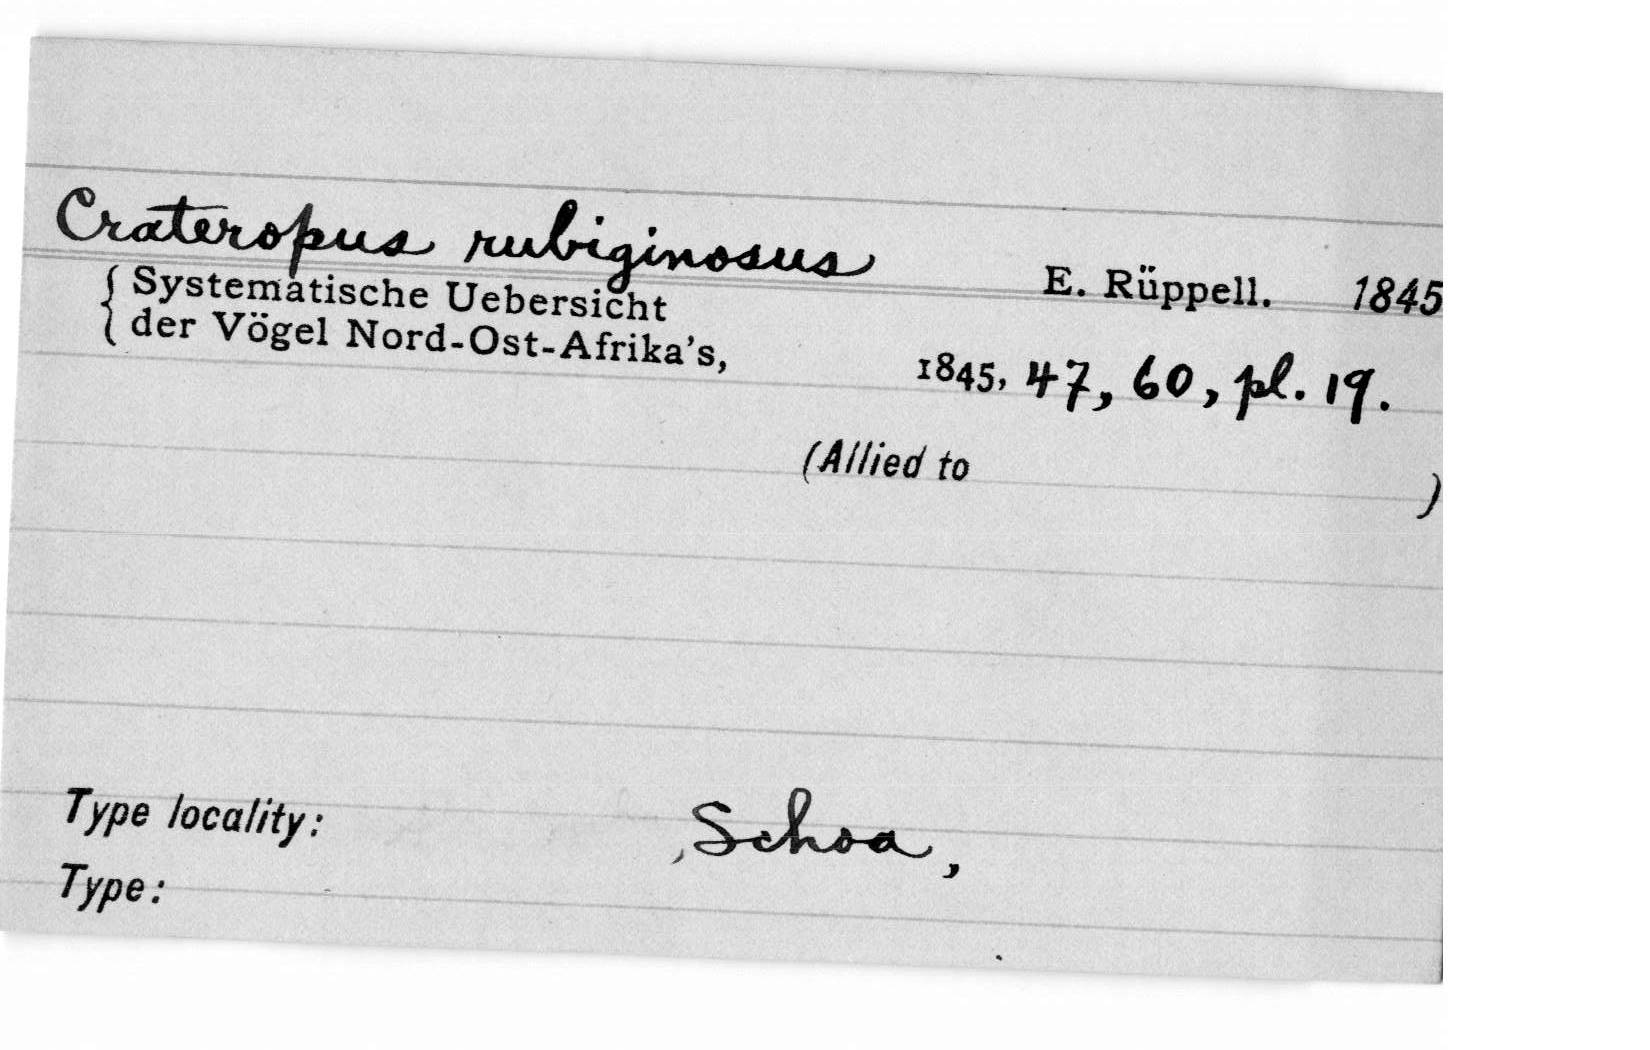 Crateropus rubiginosus E. Rüppell. 1845
{ Systematische Uebersicht
der Vögel Nord-Ost-Afrika's, 1845, 47, 60, pl. 19.
(Allied to )
Type locality: , Schoa,
Type: